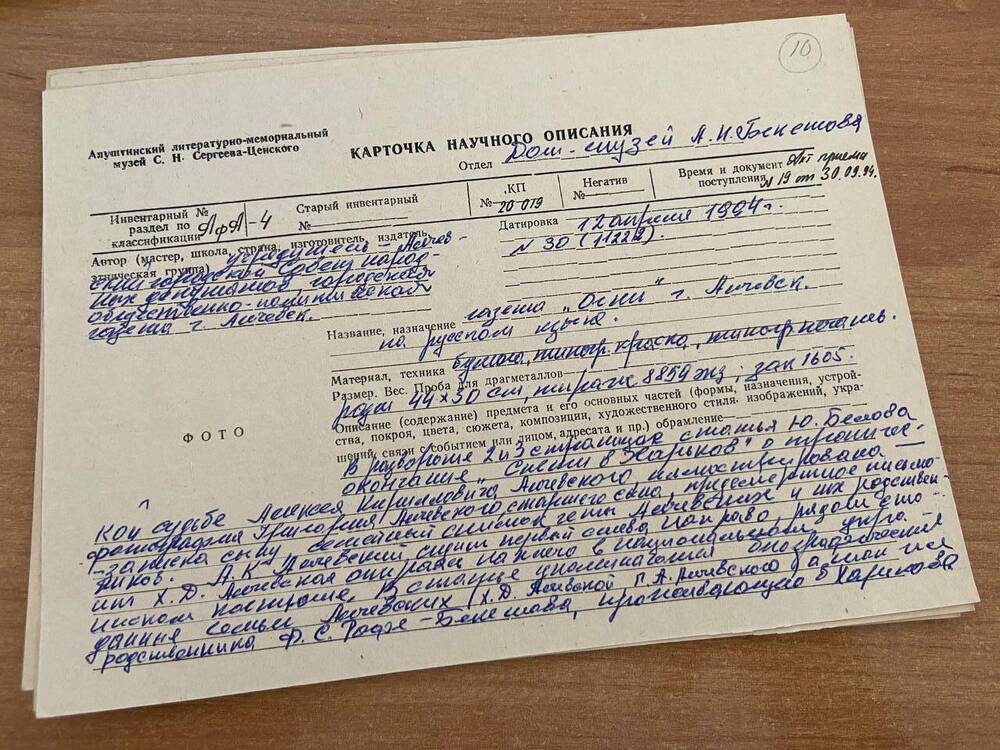 10
Алуштинский литературно-мемориальный
музей С. Н. Сергеева-Ценского
КАРТОЧКА НАУЧНОГО ОПИСАНИЯ
Отдел Дом-музей А.Н. Бекетова
Инвентарный №
раздел по
классификации АфА-4
Старый инвентарный
№
КП
№ 20 079
Негатив
№
Время и документ Акт приема
поступления N 19 от 30.09.94.
Автор (мастер, школа, страна, изготовитель, издатель,
этническая группа) учредитель - Алчев-
ский городской Совет народ-
ных депутатов, городская
общественно-политическая
газета г. Алчевск.
Датировка 12 апреля 1994 г.
N 30 (11222).
Название, назначение газета „Огни" г. Алчевск.
на русском языке.
Материал, техника бумага, типогр. краска, типогр. печать.
Размер. Вес. Проба для драгметаллов
разм 44×30 см, тираж 8859 экз; зак 1605.
Описание (содержание) предмета и его основных частей (формы, назначения, устрой-
ства, покроя, цвета, сюжета, композиции, художественного стиля, изображений, укра-
шений, связи с событием или лицом, адресата и пр.) обрамление
ФОТО
В развороте 2 и 3 страницах статья Ю. Белова
окончания „ в Харьков" о трагичес-
кой судьбе Алексея Кирилловича Алчевского, иллюстрирована
фотография Григория Алчевского старшего сына, предсмертное письмо
-записка сыну семейный снимок четы Алчевских и их родствен-
ников. А.К. Алчевский, сидит первый слева направо рядом сто-
ит Х.Д. Алчевская опираясь на плечо в национальном укра-
инском костюме. В статье упоминаются биографические
данные семьи Алчевских (Х.Д. Алчевской Г.А. Алчевского) а также
родственника Ф.С. Рофе-Бекетова, проживающего в Харькове